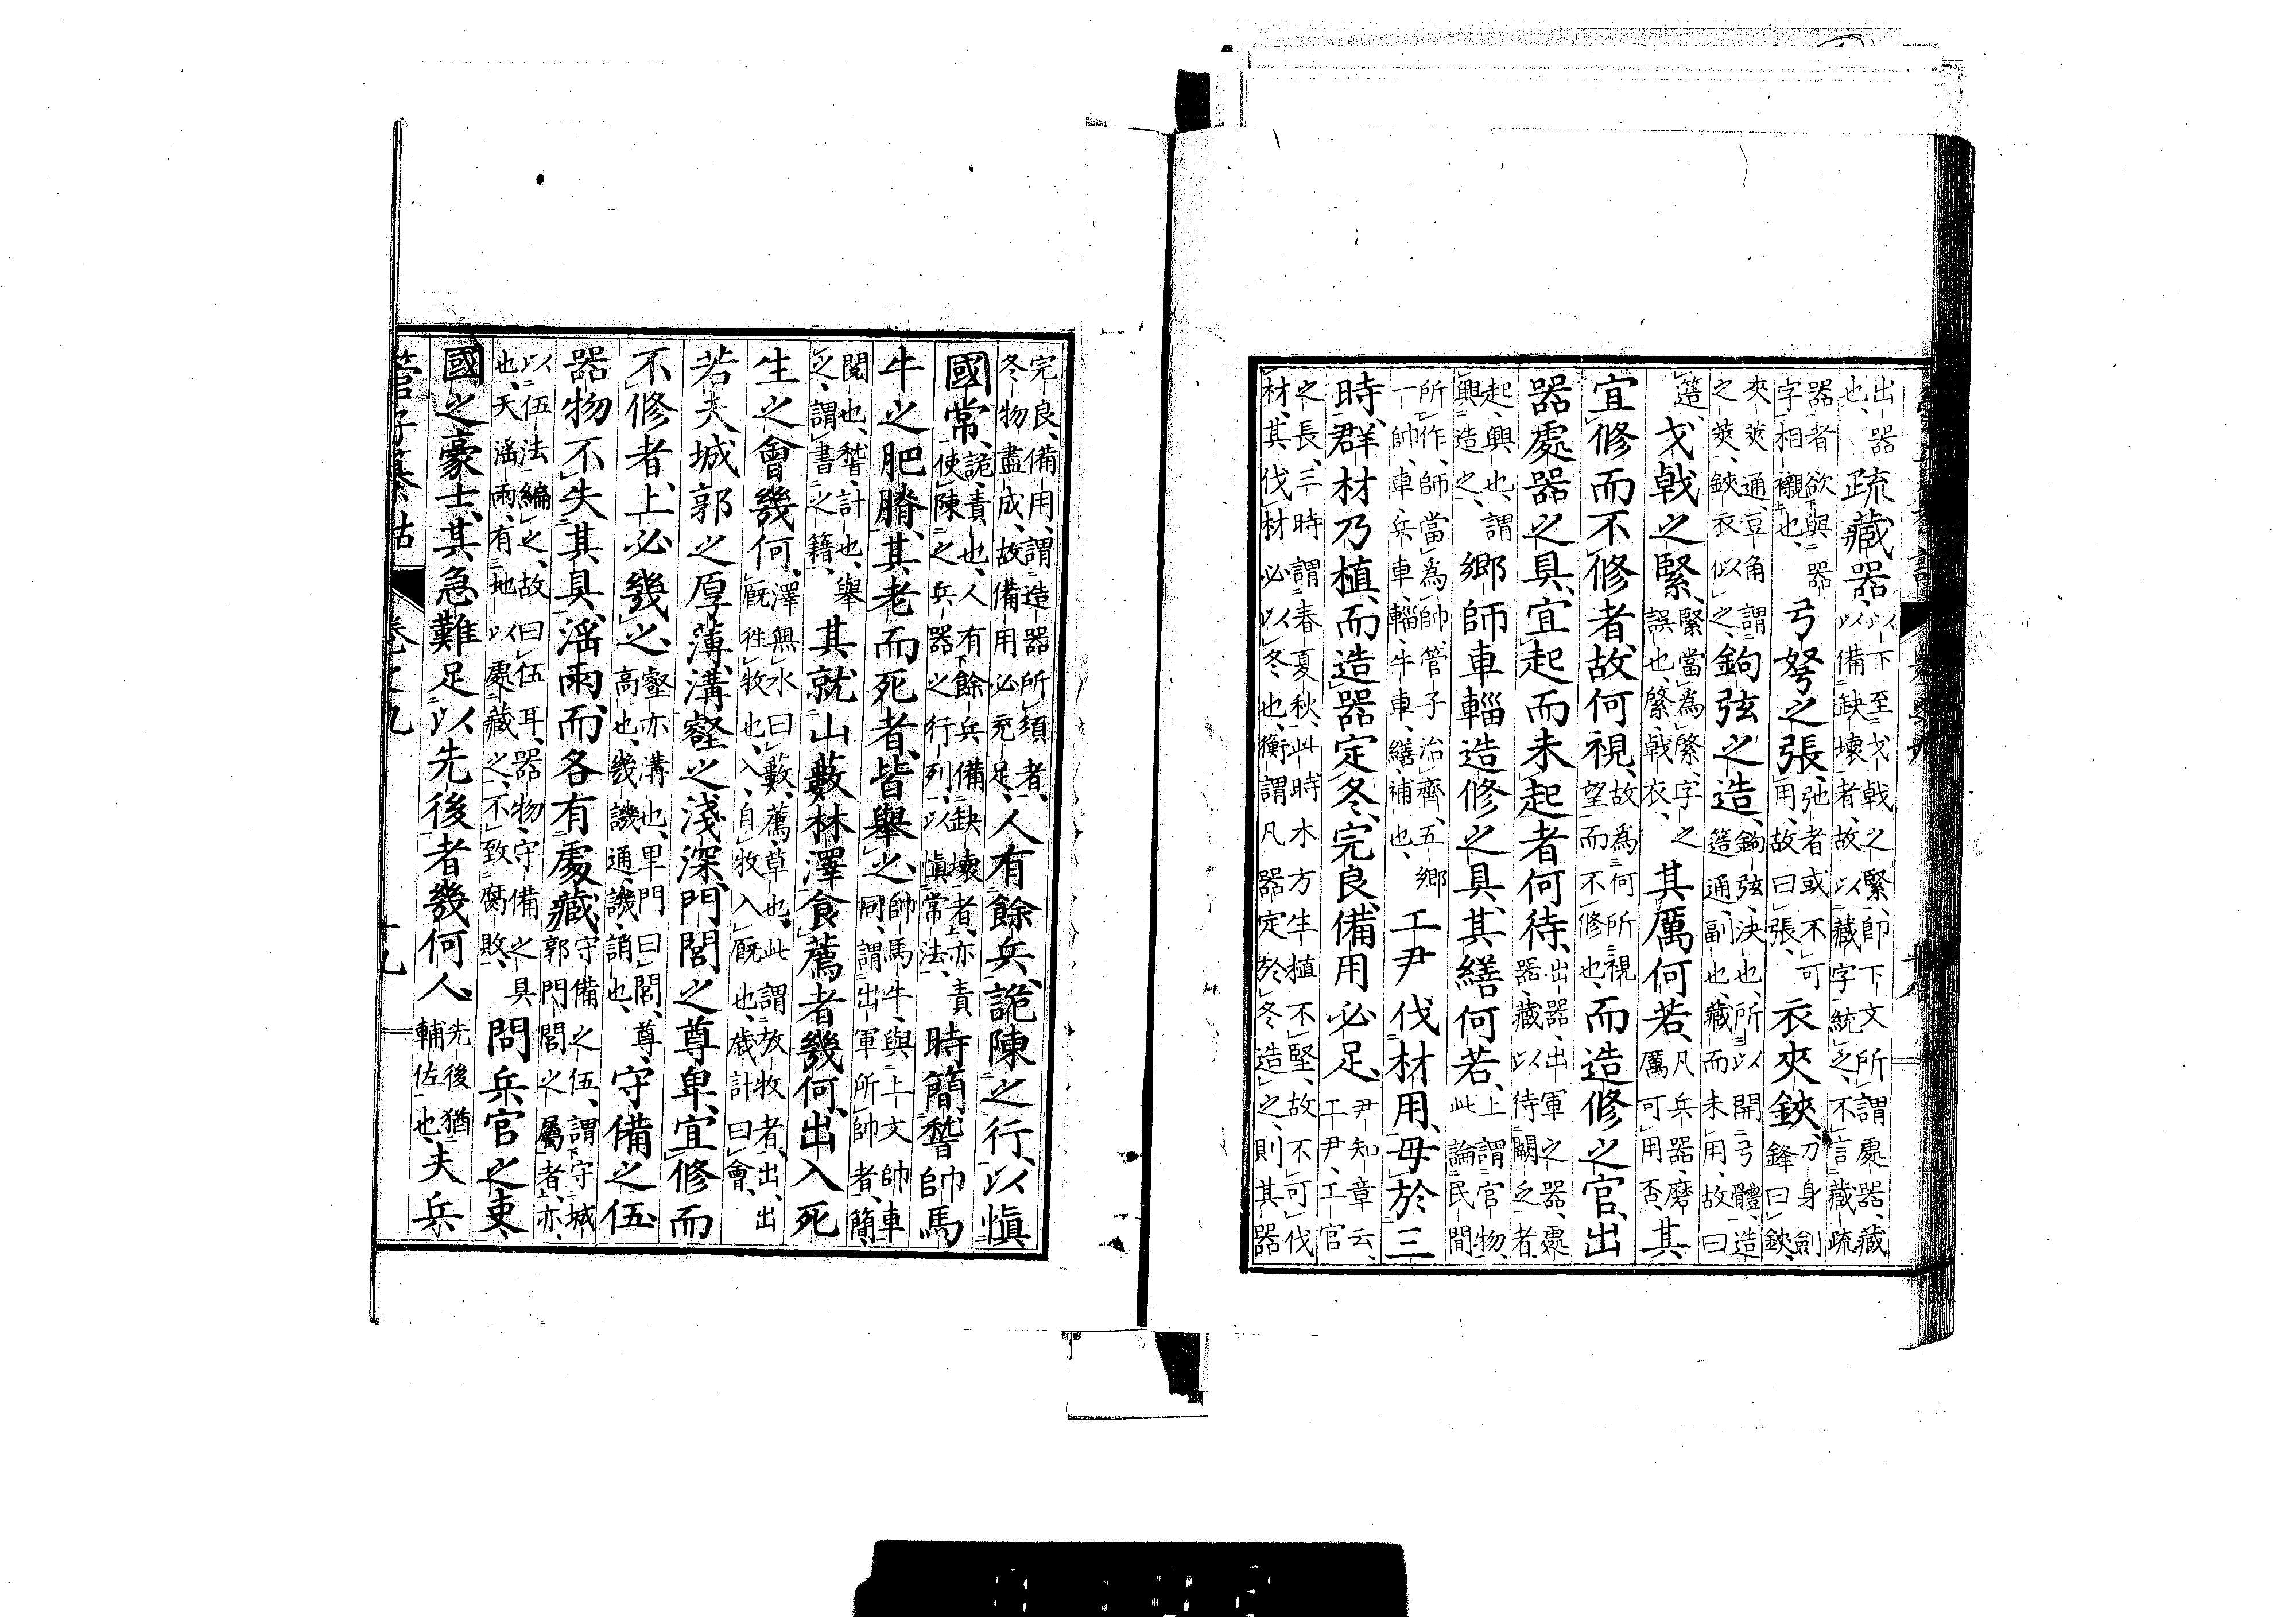 出器
也、
疏藏器、
以下至戈戟之緊、即下文所謂處器、藏
以備缺壞者、故以藏字統之、不言藏疏
器者欲與器
字相襯也、器
弓弩之張、
弛者或不可
用、故曰張、
衣夾鋏、
刀身劍
鋒曰鋏、
夾筴通、豆角謂
之筴、鋏衣似之、
鉤弦之造、
鉤弦、決也、所以開弓體、造
簉通、副也、藏而未用、故曰
簉、
戈戟之緊、
緊當爲綮、字之
誤也、綮、戟衣、
其厲何若、
凡兵器磨
厲可用否
其
宜修而不修者、故何視、
故爲何所視
望而不修也、
而造修之官、出
器處器之具、宜起而未起者何待、
出器、出軍之器、處
器、藏以待闕乏者
起、興也、謂
興造之、
鄉師車輜造修之具、其繕何若、
上謂官物、
此論民間
所作、師當爲帥、管子治齊、五鄉
一帥、車、兵車、輜、牛車、繕、補也、
工尹伐材用、毋於三
時、群材乃植、而造器定冬、完良、備用必足、
尹知章云、
工尹、工官
之長、三時謂春夏秋、此時木方生植不堅、故不可伐
材、其伐材必以冬也、衡謂凡器定於冬造之、則其器
完良、備用、謂造器所須者、
冬物盡成、故備用必充足、
人有餘兵、詭陳之行、以愼
國常、
詭、責也、人有餘兵備缺壞者、亦責
使陳之兵器之行列、以愼常法、
時簡稽帥馬
牛之肥膌、其老而死者、皆擧之、
帥馬牛、與上文帥車
同、謂出軍所帥者、簡、
閱也、稽、計也、擧
之、謂書之籍、
其就山藪林澤食薦者幾何、出入死
生之會幾何、
澤無水曰藪、薦、草也、此謂放牧者、出、出
廐徃牧也、入、自牧入廐也、歲計曰會、
若夫城郭之厚薄、溝壑之淺深、門閭之尊卑、宜修而
不修者、上必幾之、
壑亦溝也、里門曰閭、尊、
高也、幾譏通、譏、誚也、
守備之伍、
器物不失其具、淫雨、而各有處藏、
守備之伍、謂守城
郭門閭之屬者、亦
以伍法編之、故曰伍耳、器物、守備之具
也、天淫雨、有地以處藏之、不致腐敗、
問兵官之吏、
國之豪士、其急難足以先後者幾何人、
先後猶
輔佐也、
夫兵
管子纂詁
卷之九